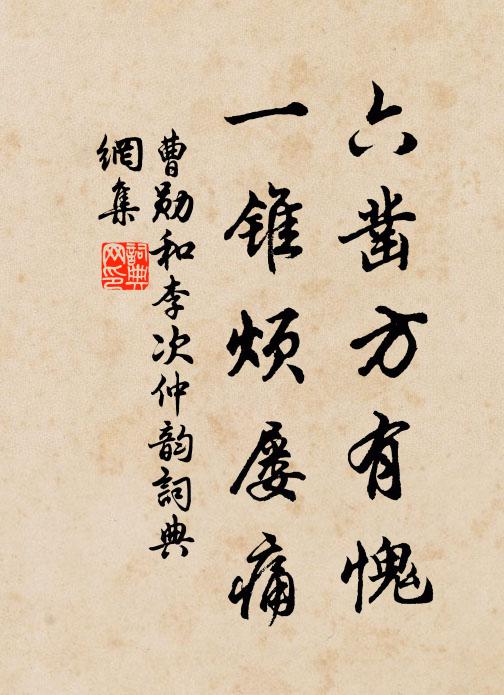 六凿方有愧
一锥烦屡痛
曹勋和李次仲韵詞典
網集
詞典
网印